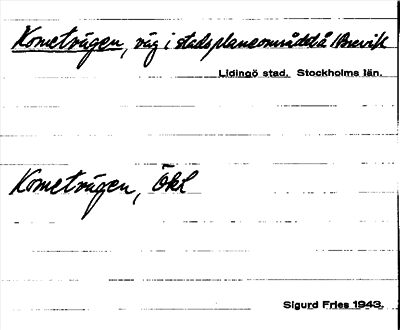 Kometvägen, väg i stadsplaneområdet å Brevik
Lidingö stad. Stockholms län.
Kometvägen, Ökl
Sigurd Fries 1943.